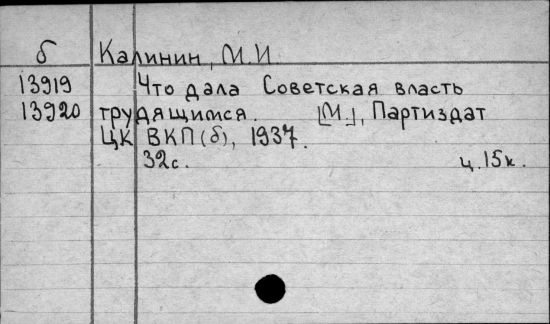 б Калинин, М.И.
13919 Что дала Советская власть
13920 трудящимся. [М.], Партиздат
ЦК ВКП(б), 1937.
32с. ц.15к.